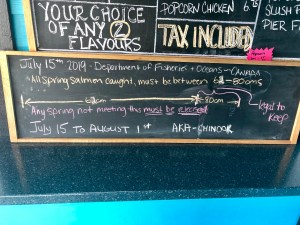 YOUR CHOICE
OF ANY 2
FLAVOURS
POPCORN CHICKEN 6
TAX INCLUDED
SLUSH P
PIER F
July 15th 2019 - Department of Fisheries + Oceans - CANADA
All spring salmon caught, must be between 67 - 80cms
67cm
80cm
legal to
keep
Any spring not meeting this must be released
July 15 TO AUGUST 1st AKA - CHINOOK